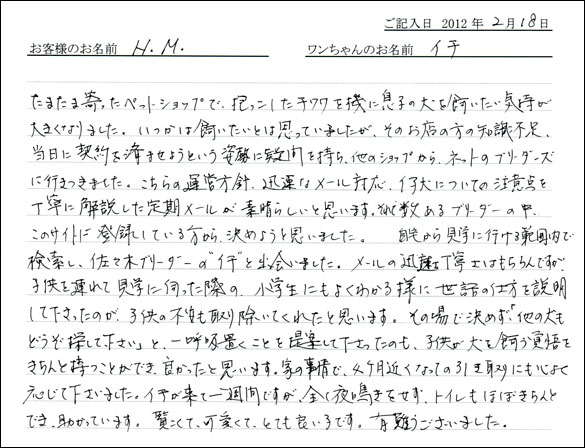 ご記入日 2012年2月18日
お客様のお名前 H.M. ワンちゃんのお名前 イチ
たまたま寄ったペットショップで、抱っこしたチワワを機に息子の犬を飼いたい気持が
大きくなりました。いつかは飼いたいとは思っていましたが、そのお店の方の知識不足、
当日に契約を済ませようという姿勢に疑問を持ち、他のショップから、ネットのブリーダーズ
に行きつきました。こちらの運営方針、迅速なメール対応、仔犬についての注意点を
丁寧に解説した定期メールが素晴らしいと思います。それで数あるブリーダーの中、
このサイトに登録している方から、決めようと思いました。 自宅から見学に行ける範囲内で
検索し、佐々木ブリーダーの"イチ"と出会いました。メールの迅速丁寧さはもちろんですが、
子供を連れて見学に伺った際の、小学生にもよくわかる様に世話の仕方を説明
して下さったのが、子供の不安も取り除いてくれたと思います。その場で決めず「他の犬も
どうぞ探して下さい」と、一呼吸置くことを提案して下さったのも、子供が犬を飼う覚悟を
きちんと持つことができ、良かったと思います。家の事情で、4ヶ月近くなっての引き取りにも心よく
応じて下さいました。イチが来て一週間ですが、全く夜鳴きをせず、トイレもほぼきちんと
でき、助かっています。賢こくて、可愛くて、とても良い子です。有難うございました。